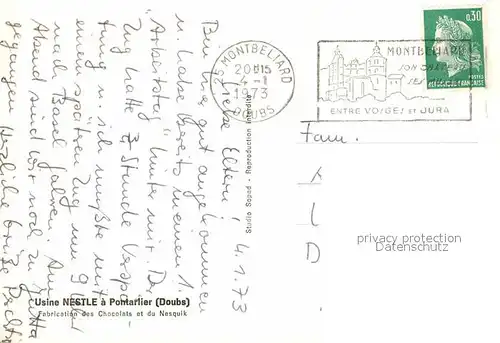 4.1.73
Liebe Eltern!
Bin hier gut angekommen
u. habe bereits meinen 1.
"Arbeitstag" hinter mir. Der
Zug hatte 3/4 Stunde Verspä-
tung u. ich mußte mit
einem spätren Zug um 9 Uhr
nach Basel fahren. Am
Abend sind wir noch zu Jutta
gegangen. Herzliche Grüße
25 MONTBELIARD
20H15
4-1
1973
DOUBS
MONTBELIARD
SON
SES
ENTRE VOSGES ET JURA
0,30
POSTES
REPUBLIQUE FRANÇAISE
Fam.
D
privacy protection
Datenschutz
Studio Sopad - Reproduction interdite
Usine NESTLE à Pontarlier (Doubs)
Fabrication des Chocolats et du Nesquik